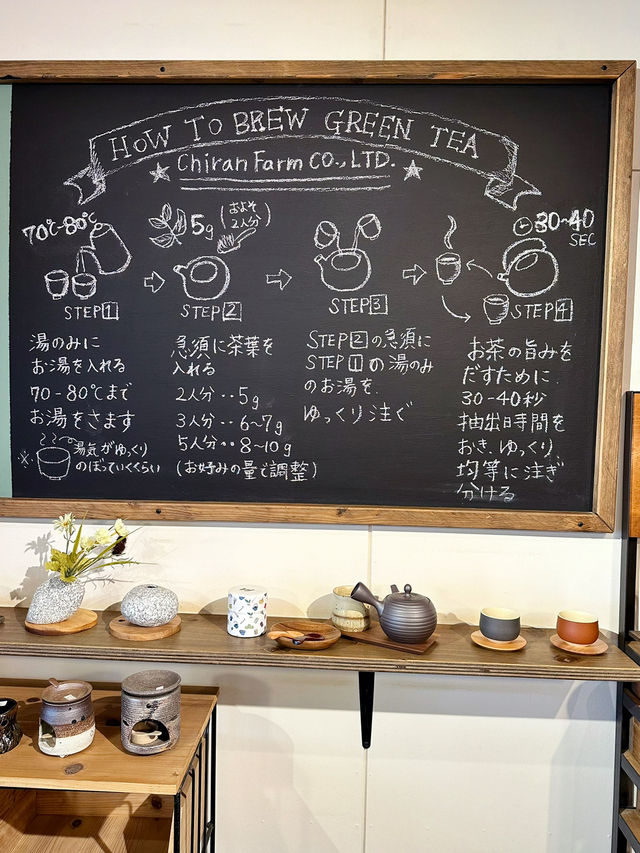 HOW TO BREW GREEN TEA
Chiran Farm CO., LTD.
70℃-80℃
STEP1
湯のみに
お湯を入れる
70-80℃まで
お湯をさます
※湯気がゆっくり
のぼっていくくらい
5g (およそ2人分)
STEP2
急須に茶葉を
入れる
2人分‥5g
3人分‥6~7g
5人分‥8~10g
(お好みの量で調整)
STEP3
STEP2の急須に
STEP1の湯のみ
のお湯を
ゆっくり注ぐ
30-40
SEC
STEP4
お茶の旨みを
だすために
30-40秒
抽出時間を
おき、ゆっくり
均等に注ぎ
分ける